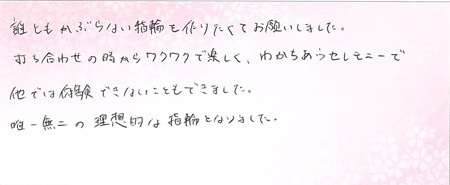 誰ともかぶらない指輪を作りたくてお願いしました。
打ち合わせの時からワクワクで楽しく、わかちあうセレモニーで
他では体験できないこともできました。
唯一無二の理想的な指輪となりました。